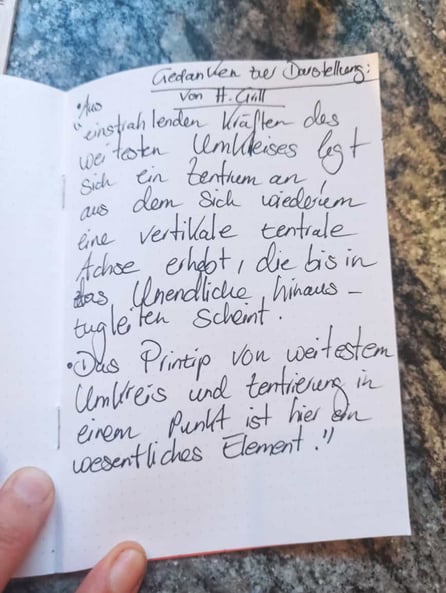 Gedanken zur Darstellung:
von H. Grill
• Aus
"einstrahlenden Kräften des
weitesten Umkreises legt
sich ein Zentrum an,
aus dem sich wiederum
eine vertikale zentrale
Achse erhebt, die bis in
das Unendliche hinaus-
zugleiten scheint.
• Das Prinzip von weitestem
Umkreis und Zentrierung in
einem Punkt ist hier ein
wesentliches Element."